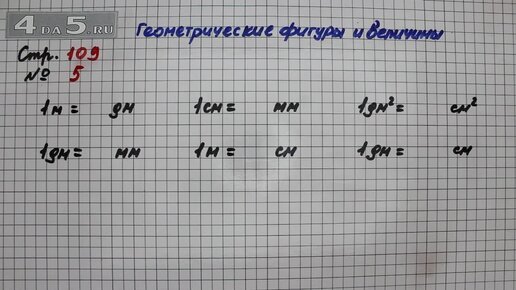 4DA5.RU
Геометрические фигуры и величины
Стр. 109
№ 5
1м = дм 1см = мм 1дм² = см²
1дм = мм 1м = см 1дм = см